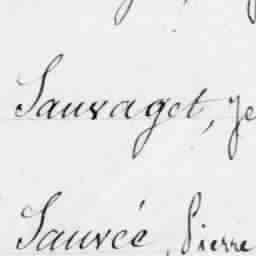 Sauvaget, Je
Sauvée, Pierre